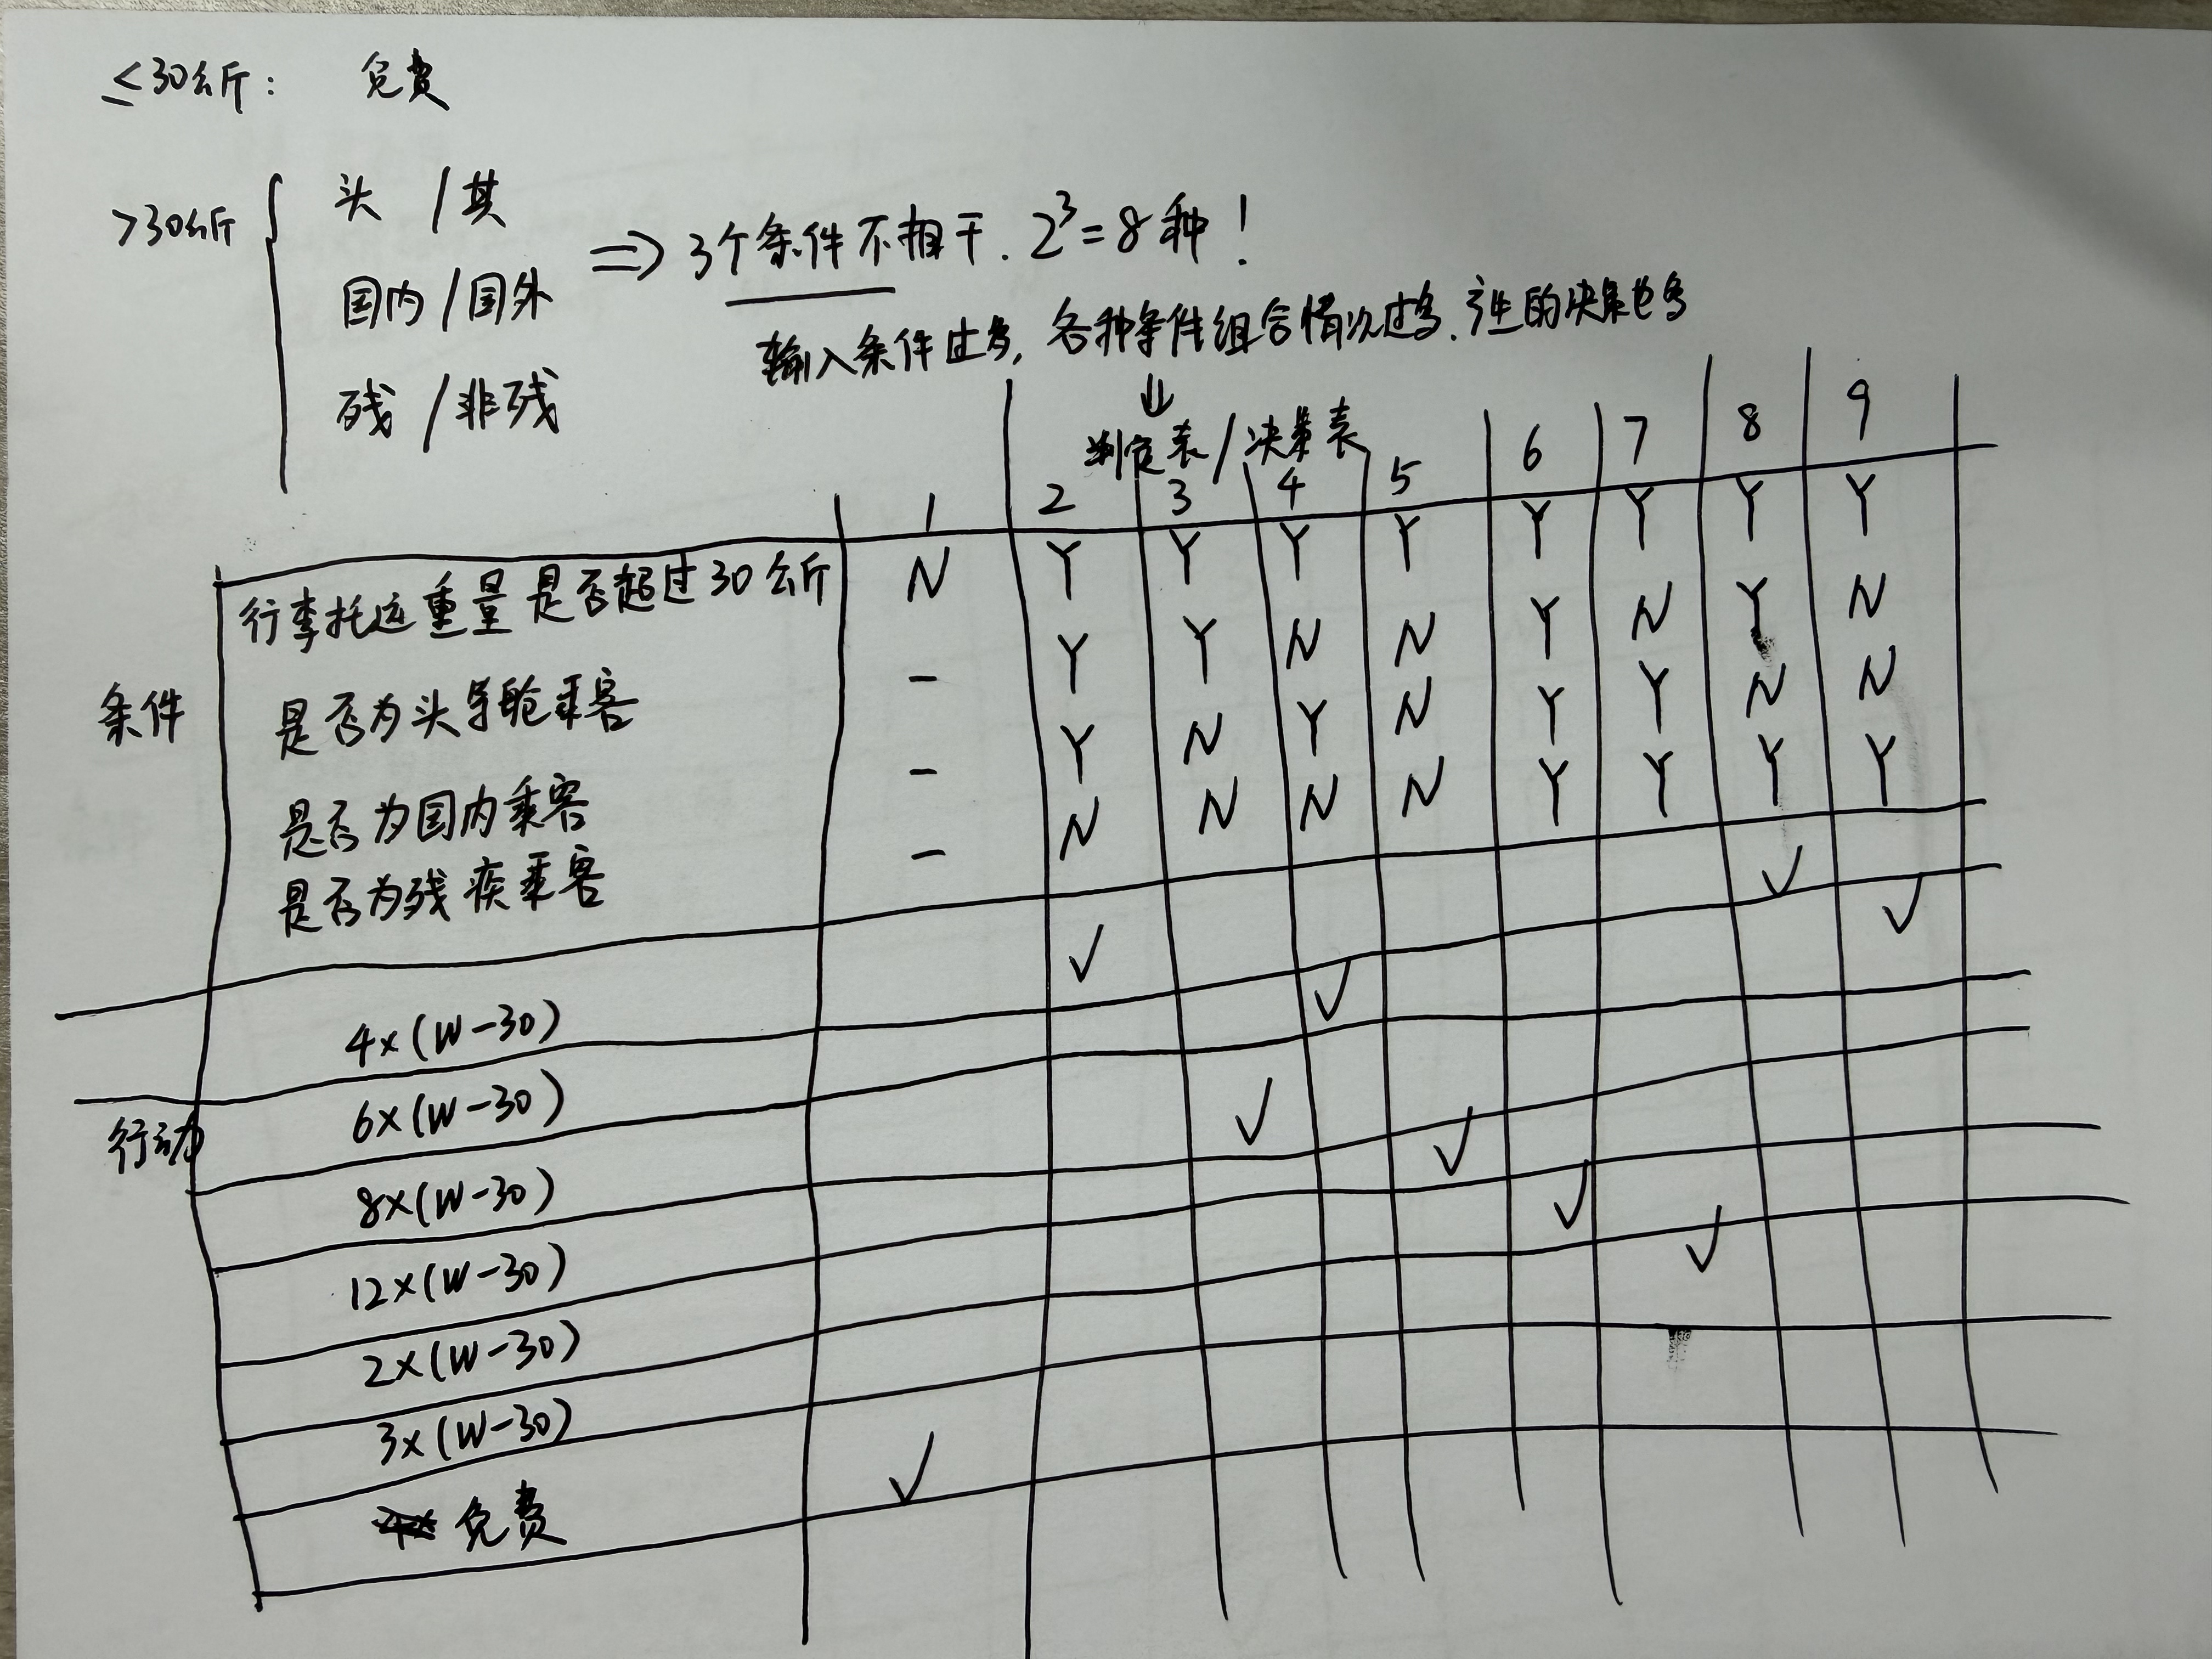 ≤30公斤： 免费
>30公斤 { 头 / 其
国内 / 国外
残 / 非残
⇒ 3个条件不相干. 2³=8种！
输入条件过多, 各种条件组合情况过多. 产生的决策也多
↓
判定表 / 决策表
1 2 3 4 5 6 7 8 9
条件
行李托运重量是否超过30公斤 N Y Y Y Y Y Y Y Y
是否为头等舱乘客 - Y Y N N Y N Y N
是否为国内乘客 - Y N Y N Y Y N N
是否为残疾乘客 - N N N N Y Y Y Y
行动
4×(W-30) ✓ ✓
6×(W-30) ✓ ✓
8×(W-30) ✓
12×(W-30) ✓
2×(W-30) ✓
3×(W-30) ✓
免费 ✓